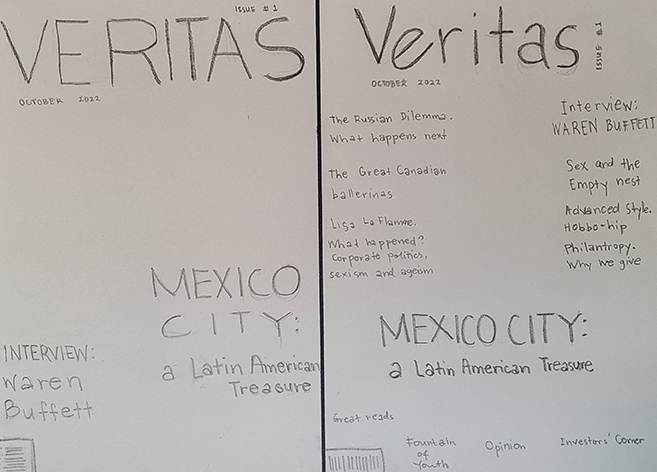 ISSUE #1
VERITAS
OCTOBER 2022
MEXICO
CITY:
a Latin American
Treasure
INTERVIEW:
Waren
Buffett
Veritas
ISSUE #.1
OCTOBER 2022
The Russian Dilemma.
What happens next
The Great Canadian
ballerinas
Lisa La Flamme.
What happened?
Corporate politics,
sexism and ageism
Interview:
WAREN BUFFETT
Sex and the
Empty nest
Advanced Style.
Hobbo-hip
Philantropy.
Why we give
MEXICO CITY:
a Latin American Treasure
Great reads
Fountain
of
Youth
Opinion
Investors' Corner